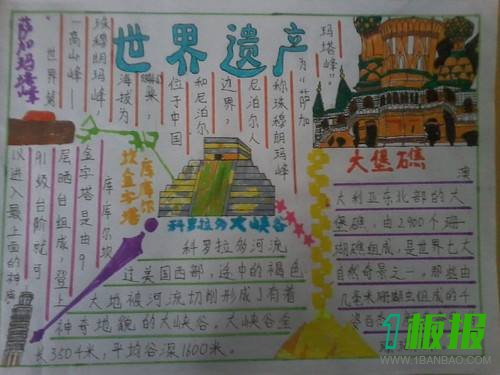 世界遗产
萨加玛塔峰
世界第
一高山峰—
珠穆朗玛峰，
海拔为
米，
位于中国
和尼泊尔
边界，
尼泊尔人
称珠穆朗玛峰
为“萨加
玛塔峰”。
库库尔
坎金字塔
库库尔坎
金字塔是由9
层晒台组成，登上
91级台阶就可
以进入最上面的神庙
科罗拉多大峡谷
科罗拉多河流
过美国西部，途中的褐色
大地被河流切削形成了有着
神奇地貌的大峡谷。大峡谷全
长3504米，平均谷深1600米。
大堡礁
澳
大利亚东北部的大
堡礁，由2900个珊
瑚礁组成，是世界七大
自然奇景之一，那些由
几毫米珊瑚虫组成的千
姿百
1板报
WWW.1BANBAO.COM